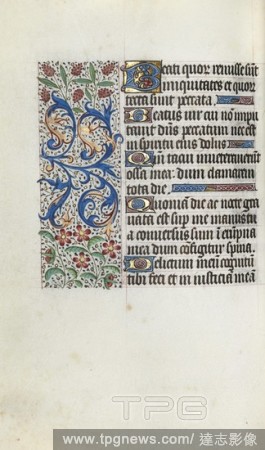 Beati quor remisse sūt
iniquitates et quor
tecta sunt peccata.
Beatus uir cui nō impu
tauit dūs peccatum nec est
in spiritu eius dolus
Qm tacui inueterauerunt
ossa mea: dum clamarem
tota die.
Quoniam die ac nocte gra
uata est sup me manus tua
conuersus sum ī erūpna
mea dum cōfigitur spina.
Delictum meū cognitū
tibi feci et in iusticiā meā
TPG
www.tpgnews.com / 達志影像